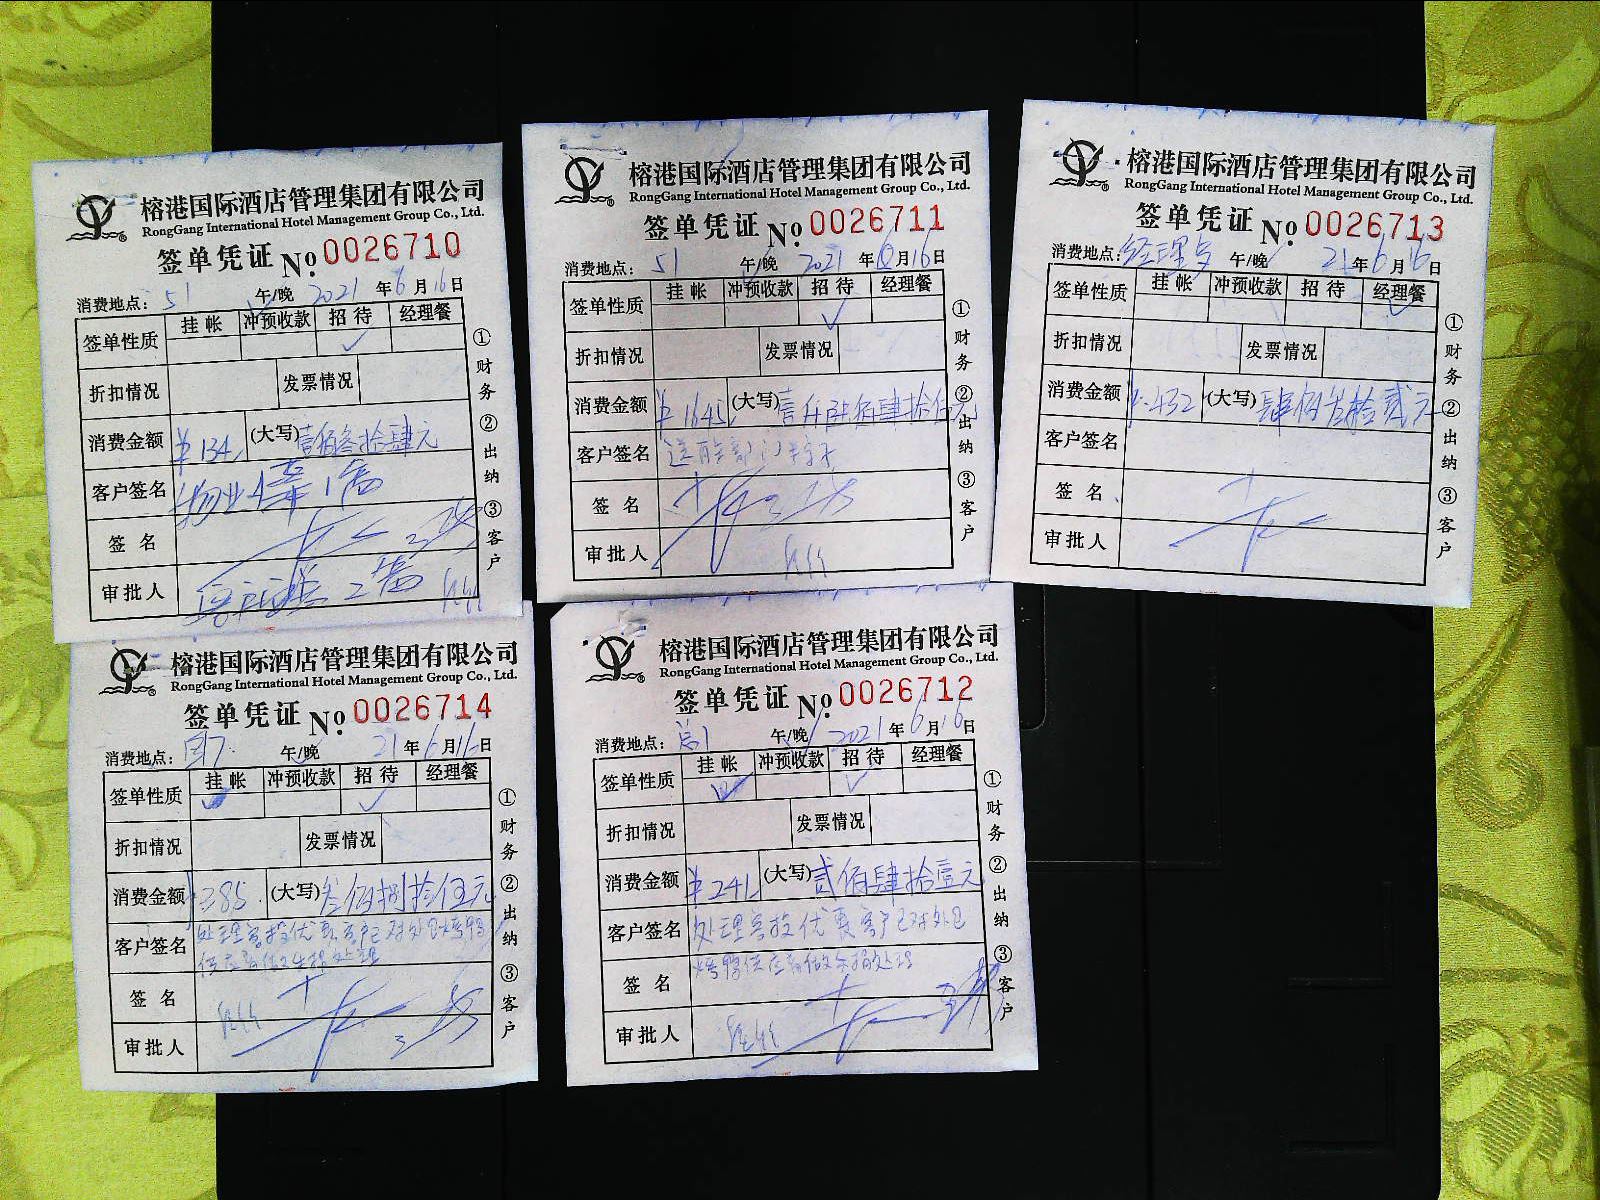 榕港国际酒店管理集团有限公司
RongGang International Hotel Management Group Co., Ltd.
签单凭证 No. 0026710
消费地点： 51 午/晚 2021 年 6 月 16 日
签单性质 挂帐 冲预收款 招待 经理餐
✓
折扣情况 发票情况
消费金额 ¥134 (大写) 壹佰叁拾肆元
客户签名 物业
签名
审批人
①财务 ②出纳 ③客户
榕港国际酒店管理集团有限公司
RongGang International Hotel Management Group Co., Ltd.
签单凭证 No. 0026711
消费地点： 51 午/晚 2021 年 6 月 16 日
签单性质 挂帐 冲预收款 招待 经理餐
✓
折扣情况 发票情况
消费金额 ¥1645 (大写) 壹仟陆佰肆拾伍元
客户签名
签名
审批人
①财务 ②出纳 ③客户
榕港国际酒店管理集团有限公司
RongGang International Hotel Management Group Co., Ltd.
签单凭证 No. 0026713
消费地点： 经理 午/晚 21 年 6 月 16 日
签单性质 挂帐 冲预收款 招待 经理餐
✓
折扣情况 发票情况
消费金额 ¥432 (大写) 肆佰叁拾贰元
客户签名
签名
审批人
①财务 ②出纳 ③客户
榕港国际酒店管理集团有限公司
RongGang International Hotel Management Group Co., Ltd.
签单凭证 No. 0026714
消费地点： 午/晚 21 年 6 月 16 日
签单性质 挂帐 冲预收款 招待 经理餐
✓
折扣情况 发票情况
消费金额 385 (大写) 叁佰捌拾伍元
客户签名 处理客投优惠客户已对外包烤鸭
供应商做承担处理
签名
审批人
①财务 ②出纳 ③客户
榕港国际酒店管理集团有限公司
RongGang International Hotel Management Group Co., Ltd.
签单凭证 No. 0026712
消费地点： 午/晚 2021 年 6 月 16 日
签单性质 挂帐 冲预收款 招待 经理餐
✓
折扣情况 发票情况
消费金额 ¥241 (大写) 贰佰肆拾壹元
客户签名 处理客投优惠客户已对外包
签名 烤鸭供应商做承担处理
审批人
①财务 ②出纳 ③客户